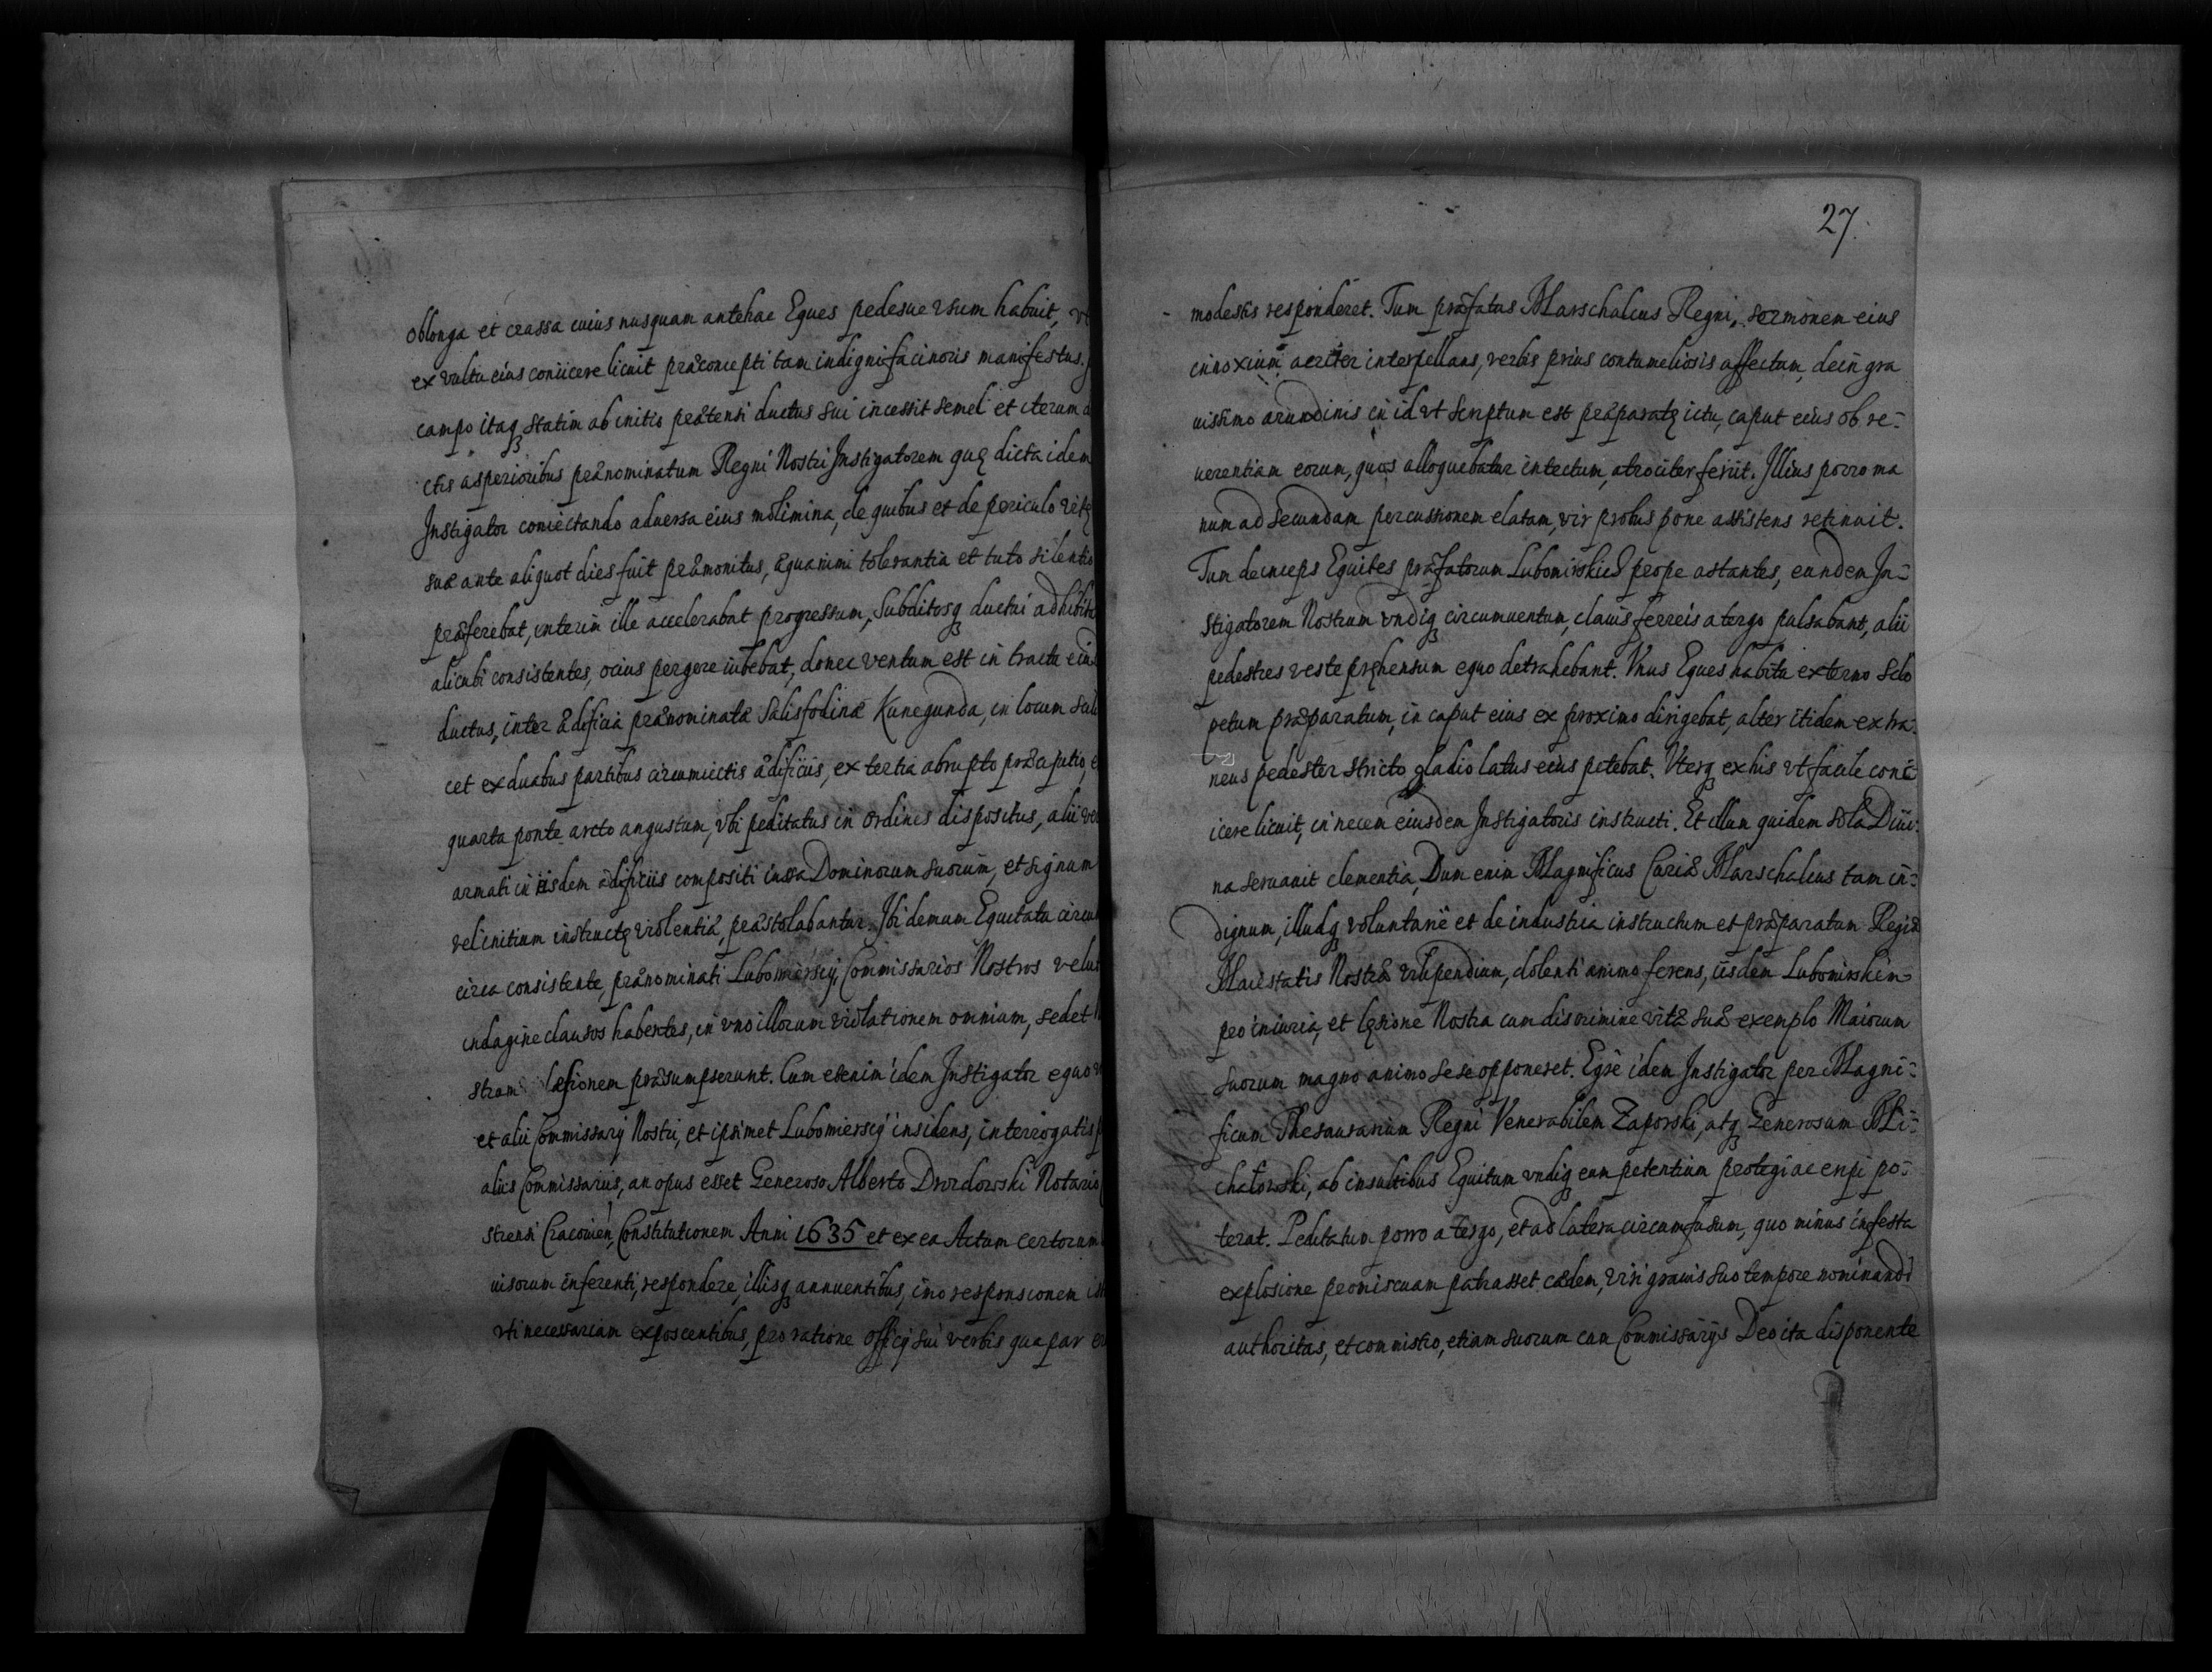 oblonga et crassa cuius nusquam antehac Eques pedesue vsum habuit, vt
ex vultu eius coniicere licuit præconcepti tam indigni facinoris manifestus.
campo itaq statim ab initio prætensi ductus sui incessit semel et iterum
ctis asperioribus prænominatum Regni Nostri Instigatorem quę dicta idem
Instigator coniectando aduersa eius molimina, de quibus et de periculo vitę
suæ ante aliquot dies fuit præmonitus, æquanimi tolerantia et tuto silentio
præferebat, interim ille accelerabat progressum, Subditosq ductui adhibitos
alicubi consistentes, ocius pergere iubebat, donec ventum est in tractu eius
ductus, inter ædificia prænominatæ Salisfodinæ Kunegunda, in locum scili
cet ex duabus partibus circumiectis ædificiis, ex tertia abrupto præcipitio,
quarta ponte arcto angustum, vbi peditatus in ordines dispositus, alii vero
armati in iisdem ædificiis compositi iussa Dominorum suorum, et signum
vel initium instructę violentiæ, præstolabantur. Ibi demum Equitatu circum
circa consistente, prænominati Lubomierscÿ Commissarios Nostros velut
indagine clausos habentes, in vno illorum violationem omnium, sed et
stram læsionem præsumpserunt. Cum etenim idem Instigator equo
et alii Commissarÿ Nostri, et ipsimet Lubomierscÿ insidens, interrogatis
aliis Commissariis, an opus esset Generoso Alberto Drozdowski Notario
strensi Cracouien, Constitutionem Anni 1635 et ex ea Actum certorum
uisorum inferenti, respondere, illisq annuentibus, imo responsionem
vti necessariam exposcentibus, pro ratione officÿ sui verbis qua par
27.
modestis responderet. Tum præfatus Marschalcus Regni, sermonem eius
innoxium acriter interpellans, verbis prius contumeliosis affectum, dein gra
uissimo arundinis in id vt scriptum est præparatę ictu, caput eius ob re-
uerentiam eorum, quos alloquebatur intectum, atrociter feriit. Illius porro ma
num ad secundam percussionem elatam, vir probus pone assistens retinuit.
Tum deinceps Equites præfatorum Lubomirskich prope astantes, eundem In-
stigatorem Nostrum vndiq circumuentum, clauis ferreis a tergo pulsabant, alii
pedestres veste pręhensum equo detrahebant. Vnus Eques habitu externo Sclo
petum præparatum, in caput eius ex proximo dirigebat, alter itidem extra-
neus pedester stricto gladio latus eius petebat. Vterq ex his vt facile coni-
icere licuit, in necem eiusdem Instigatoris instructi. Et illum quidem sola Diui-
na seruauit clementia, Dum enim Magnificus Curiæ Marschalcus tam in-
dignum, illudq voluntariè et de industria instructum et præparatum Regiæ
Maiestatis Nostræ vilipendium, dolenti animo ferens, iisdem Lubomirskim
pro iniuria, et lęsione Nostra cum discrimine vitæ suæ exemplo Maiorum
suorum magno animo sese opponeret. Egrè idem Instigator per Magni-
ficum Thesaurarium Regni Venerabilem Zaporski, atq Generosum Mi-
chałowski, ab insultibus Equitum vndiq eum petentium protegi ac eripi po-
terat. Peditatum porro a tergo, et ad latera circumfusum, quo minus infesta
explosione promiscuam patrasset cædem, viri grauis suo tempore nominandi
authoritas, et commistio, etiam suorum cum Commissarÿs Deo ita disponente